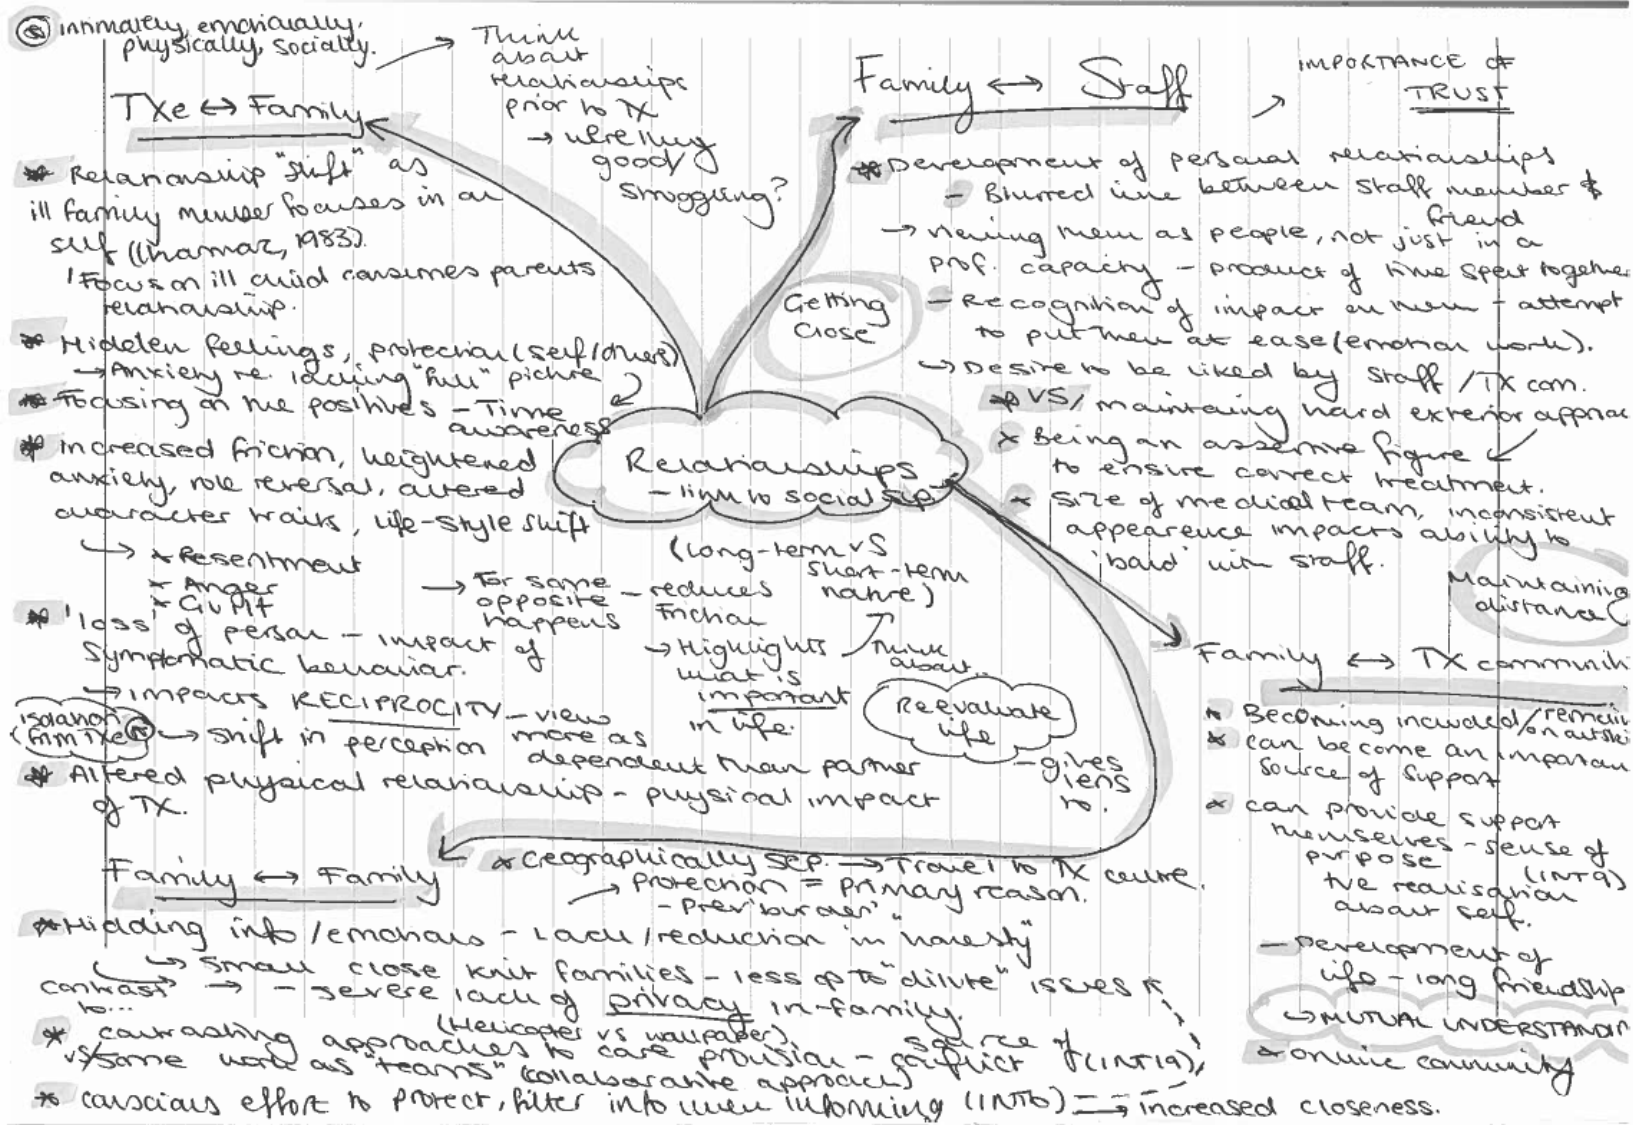 ® intimately, emotionally,
physically, socially.
→ Think
about
relationships
prior to TX
→ were they
good/
struggling?
TXe ↔ Family
* Relationship "shift" as
ill family member focuses in on
self (Charmaz, 1983).
! Focus on ill child consumes parents
relationship.
* Hidden feelings, protection (self/others)
→ Anxiety re. lacking "full" picture
* Focusing on the positives - Time
awareness
* increased friction, heightened
anxiety, role reversal, altered
character traits, life-style shift
→ * Resentment
* Anger
* Guilt
→ For some
opposite
happens
- reduces
friction
→ Highlights
what is
important
in life.
* 'loss' of person - impact of
symptomatic behaviour.
→ impacts RECIPROCITY - view
more as
dependent than partner
isolation
from TXe ®
→ shift in perception
* Altered physical relationship - physical impact
of TX.
Relationships
- link to social sup.
(long-term vs
short-term
nature)
Think
about...
Re evaluate
life
- gives
lens
to.
Getting
close
Family ↔ Staff
→ IMPORTANCE OF
TRUST
* Development of personal relationships
- Blurred line between staff member &
friend
→ viewing them as people, not just in a
prof. capacity - product of time spent together
- Recognition of impact on them - attempt
to put them at ease (emotion work).
→ Desire to be liked by staff / TX com.
* VS/ maintaing hard exterior approac
* Being an assertive figure
to ensure correct treatment.
* size of medical team, inconsistent
appearence impacts ability to
'bond' with staff.
Maintaining
distance
Family ↔ TX communit
* Becoming included/remain
on outski
* can become an importan
source of support
* can provide support
themselves - sense of
purpose (INT9)
+ve realisation
about self.
- Development of
life-long friendship
→ MUTUAL UNDERSTANDIN
* online community
Family ↔ Family
* Geographically sep. → Travel to TX centre.
→ protection = primary reason.
- prev 'burden'
* Hidding info/emotions - Lack/reduction "in honesty"
→ small close knit families - less op to "dilute" issues
contrast
to...
→ - severe lack of privacy in-family.
(Helicopter vs wallpaper).
* contrasting approaches to care provision - source of
conflict (INT19),
vs/some work as "teams" (collaborative approach)
* conscious effort to protect, filter info when informing (INT6) → increased closeness.